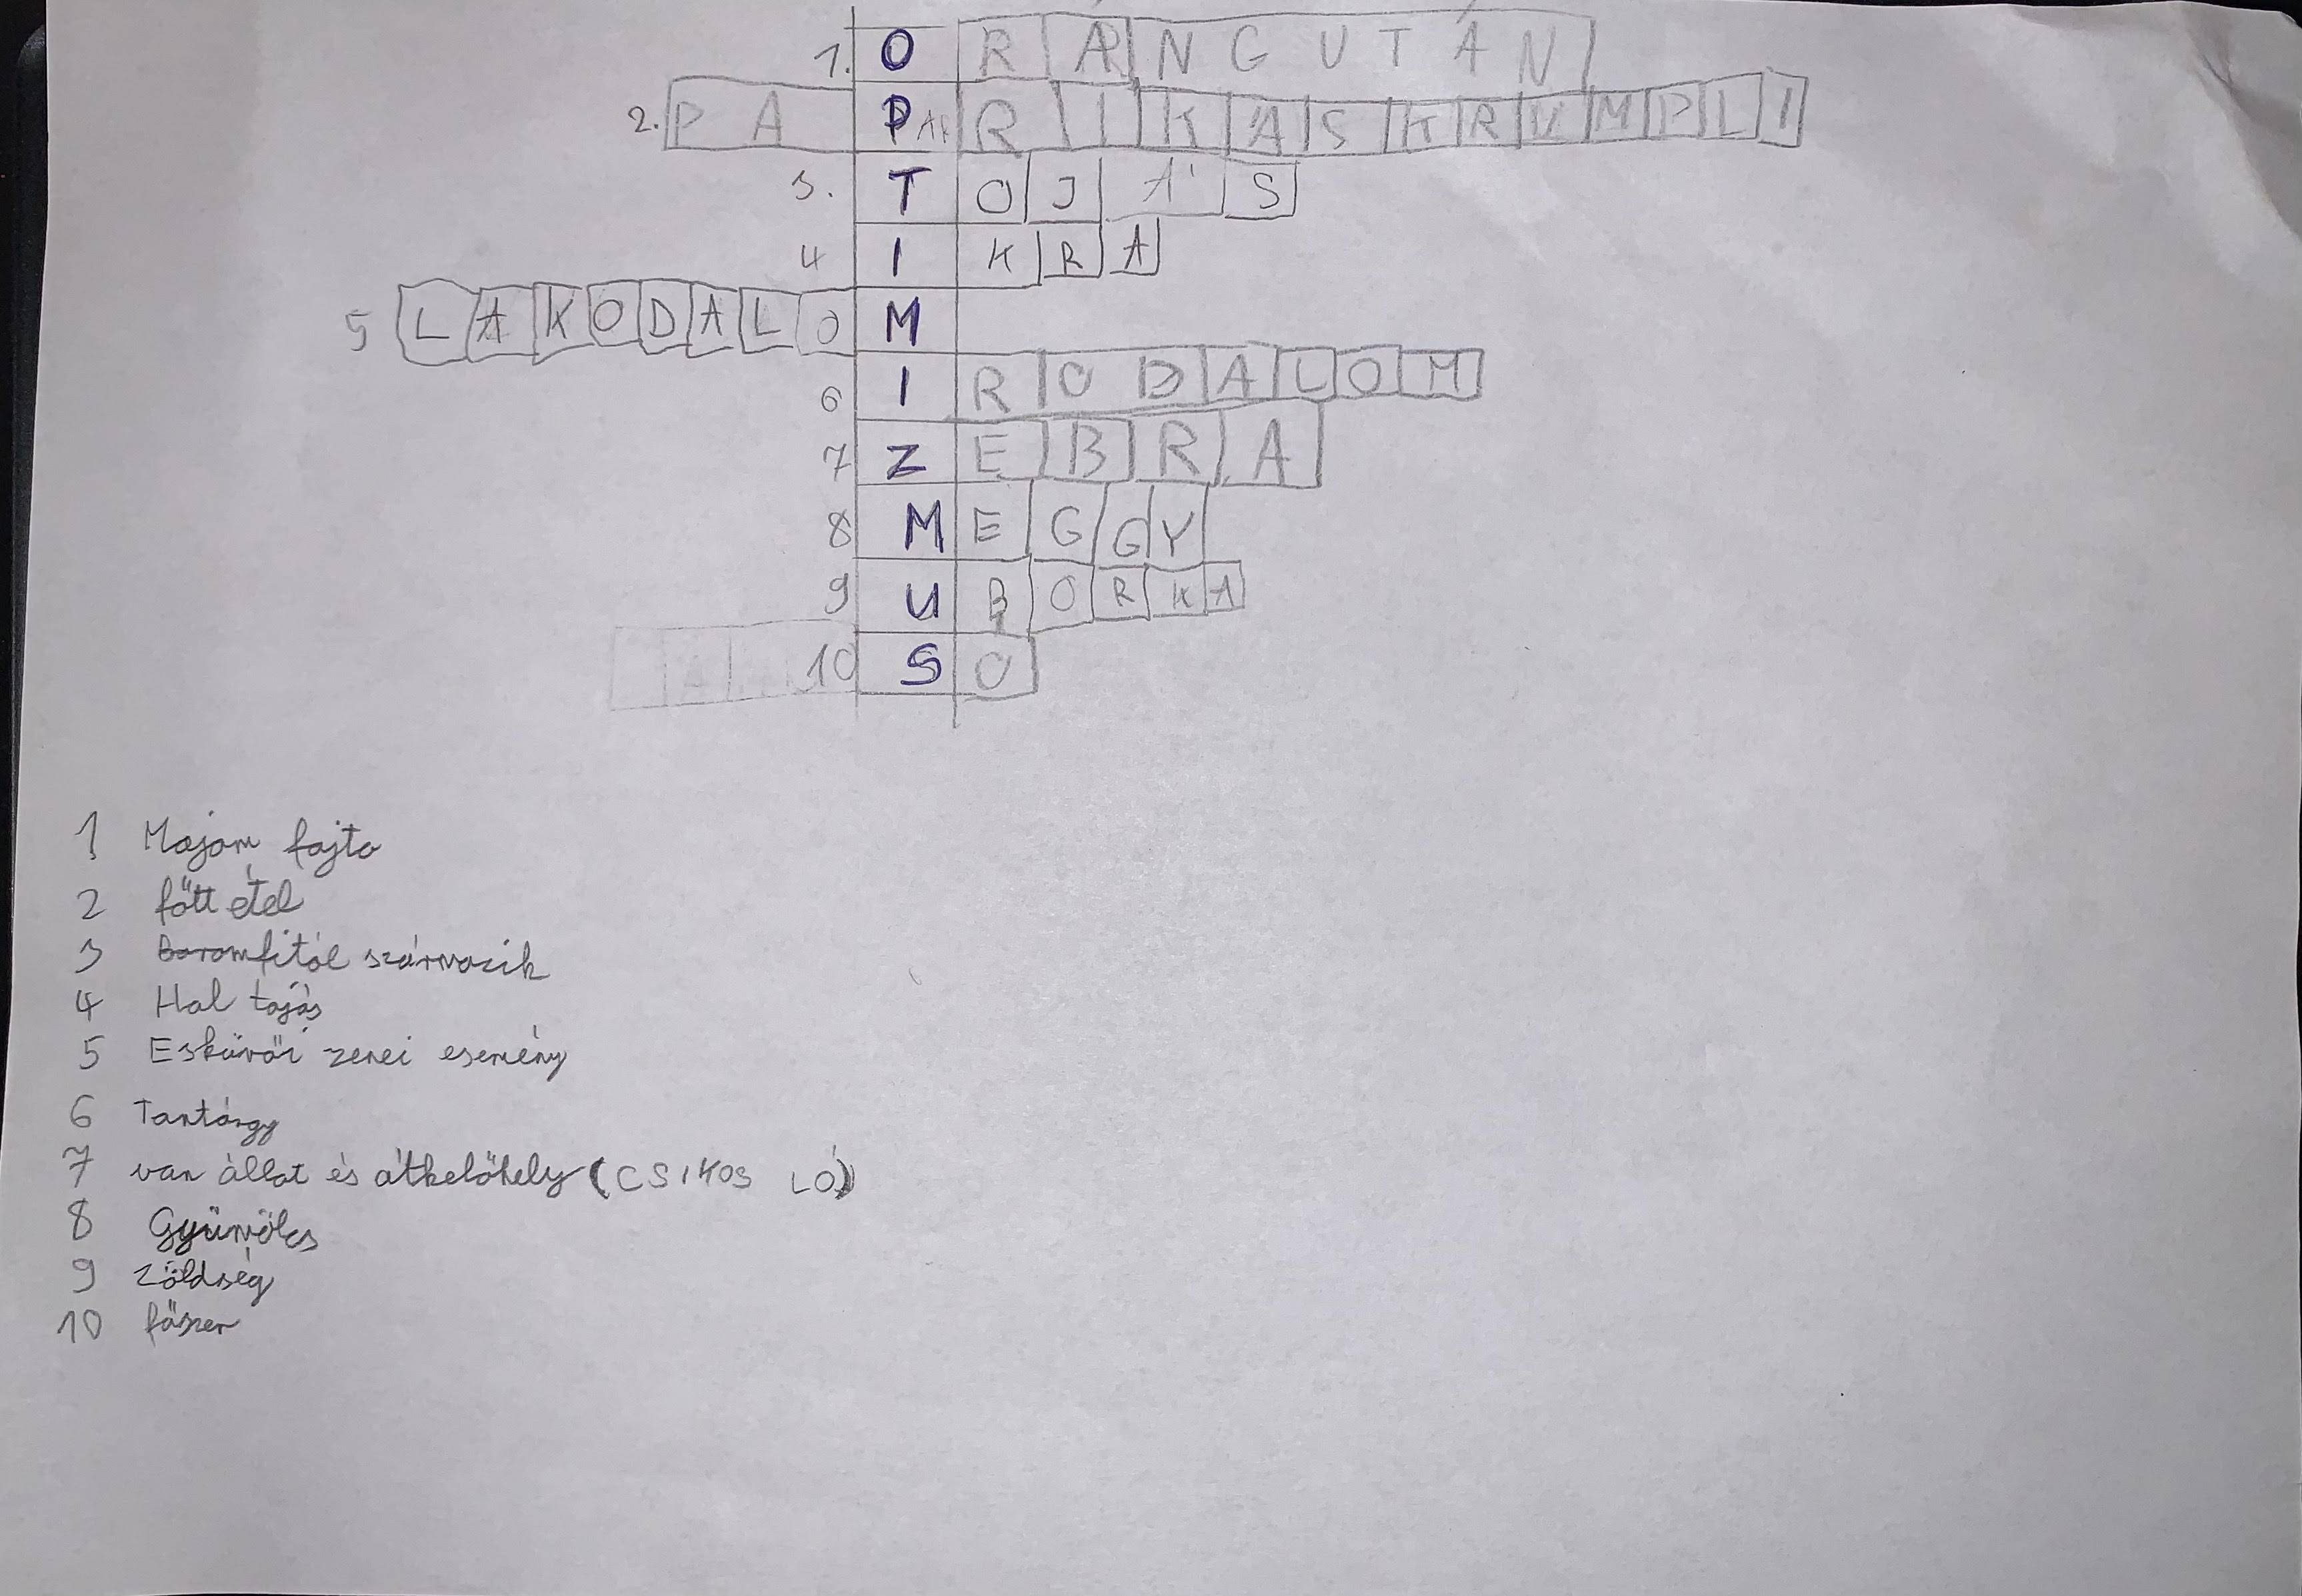 1. O RÁNGUTÁN
2. PA P RIKÁSKRUMPLI
3. T OJÁS
4 I KRA
5 LAKODALO M
6 I RODALOM
7 Z EBRA
8 M EGGY
9 U BORKA
10 S O
1 Majom fajta
2 főtt étel
3 Baromfitól származik
4 Hal tojás
5 Esküvői zenei esemény
6 Tantárgy
7 van állat és átkelőhely (CSIKOS LÓ)
8 Gyümölcs
9 Zöldség
10 fűszer